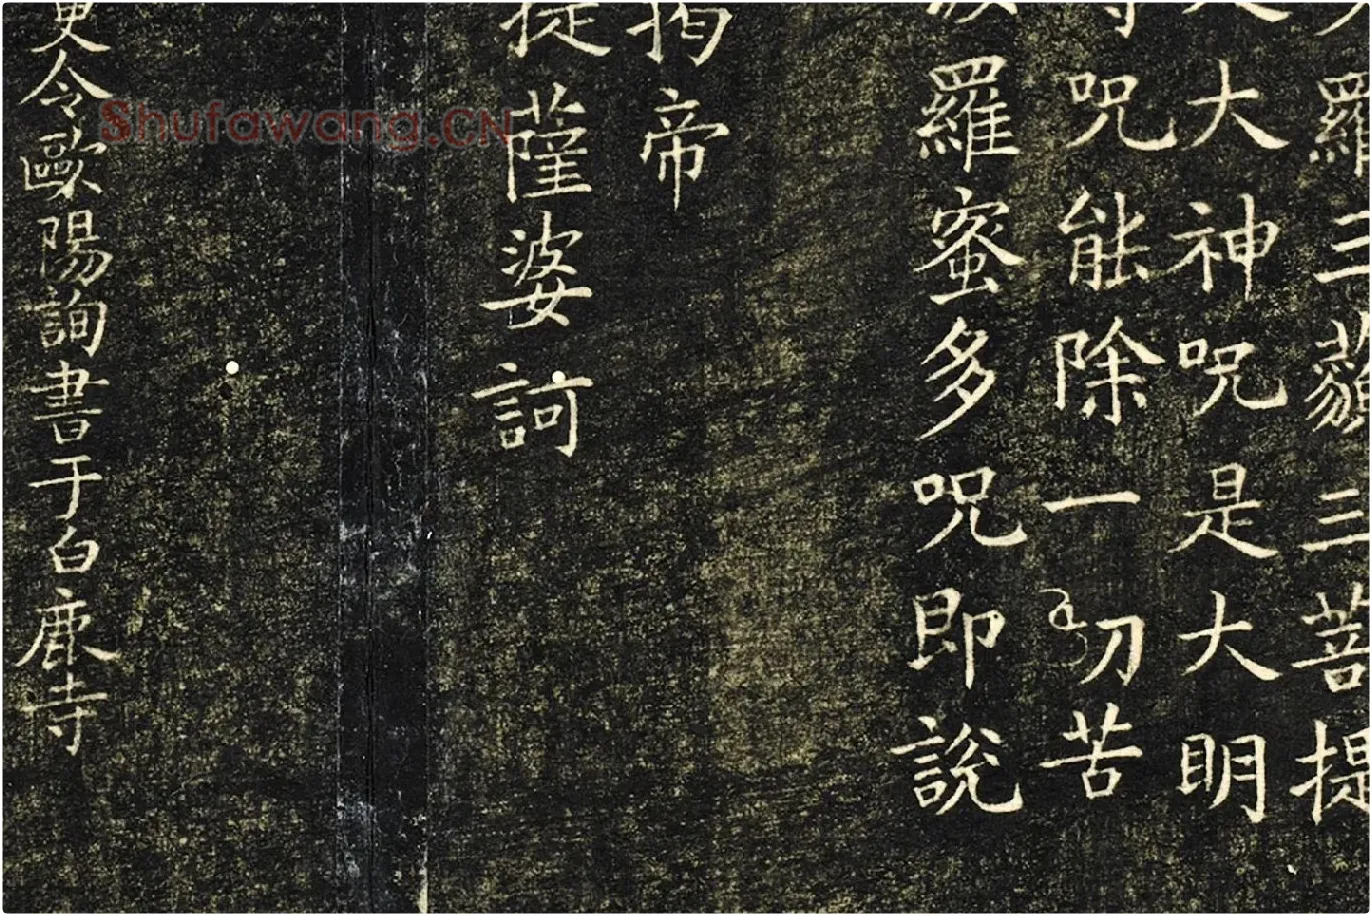 羅三藐三菩提
大神咒是大明
咒能除一切苦
羅蜜多咒即說
揭帝
提薩婆訶
更令歐陽詢書于白鹿寺
Shufawang.CN